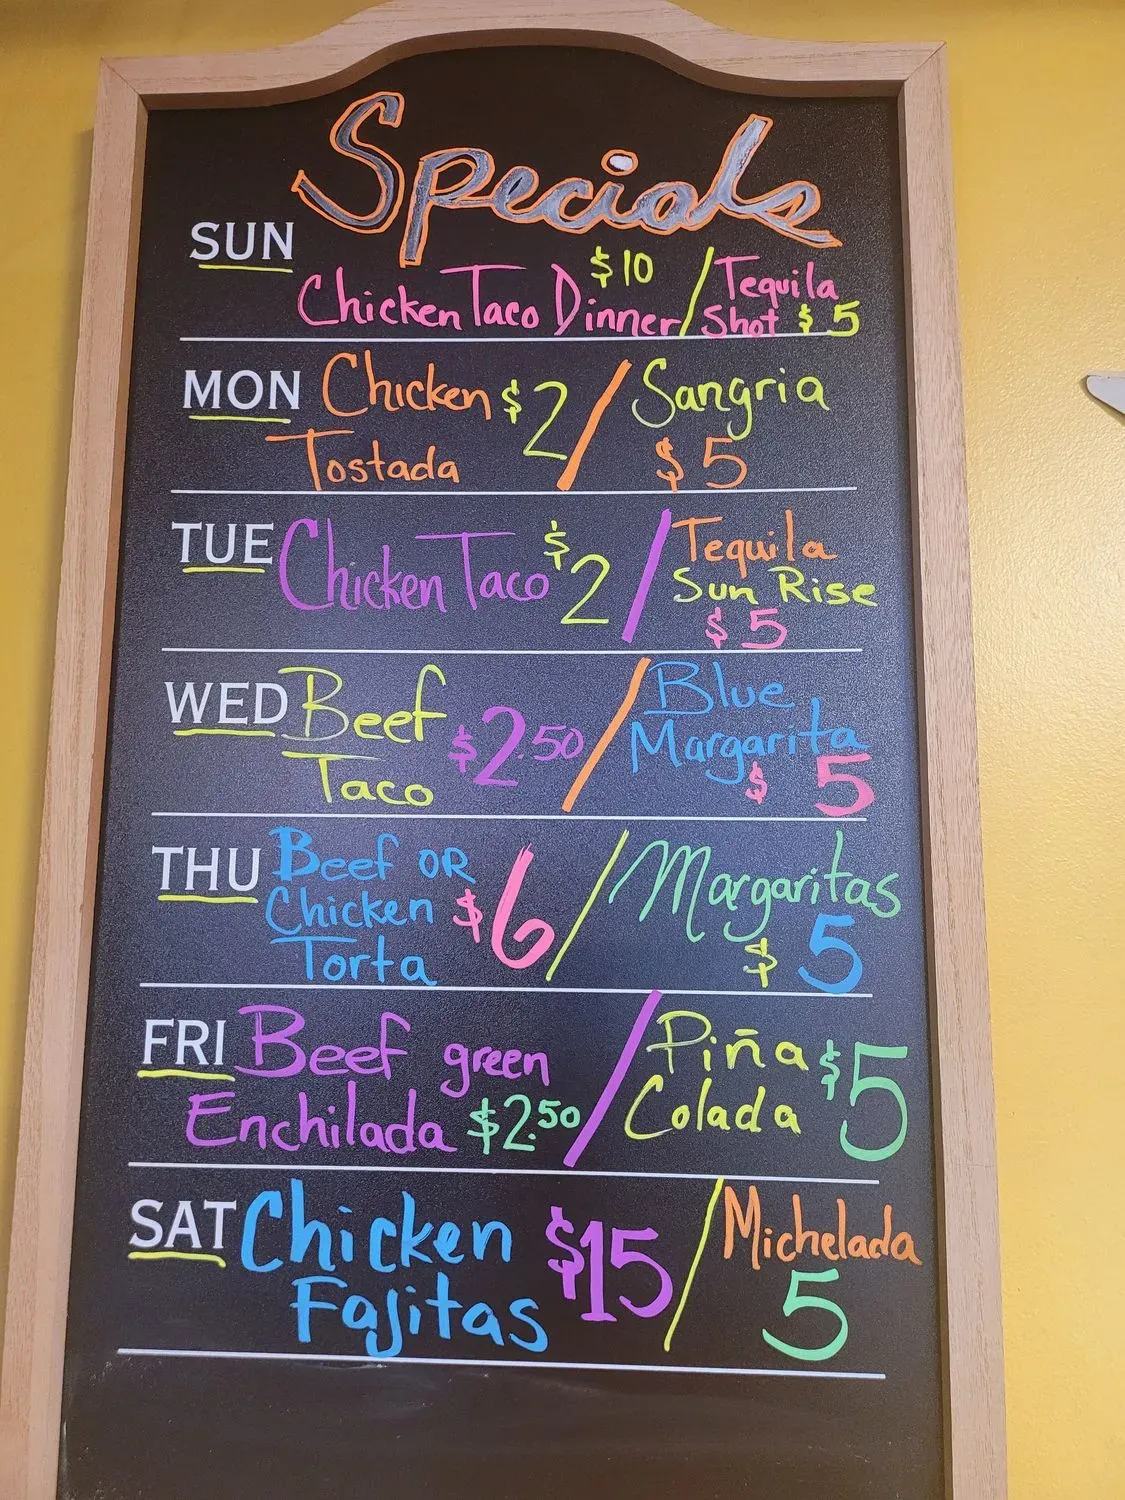 Specials
SUN
$10
Chicken Taco Dinner / Tequila
Shot $5
MON Chicken $2 / Sangria
Tostada $5
TUE Chicken Taco $2 / Tequila
Sun Rise
$5
WED Beef $2.50 / Blue
Taco Margarita
$5
THU Beef OR $6 / Margaritas
Chicken $5
Torta
FRI Beef green / Piña $5
Enchilada $2.50 Colada
SAT Chicken $15 / Michelada
Fajitas 5